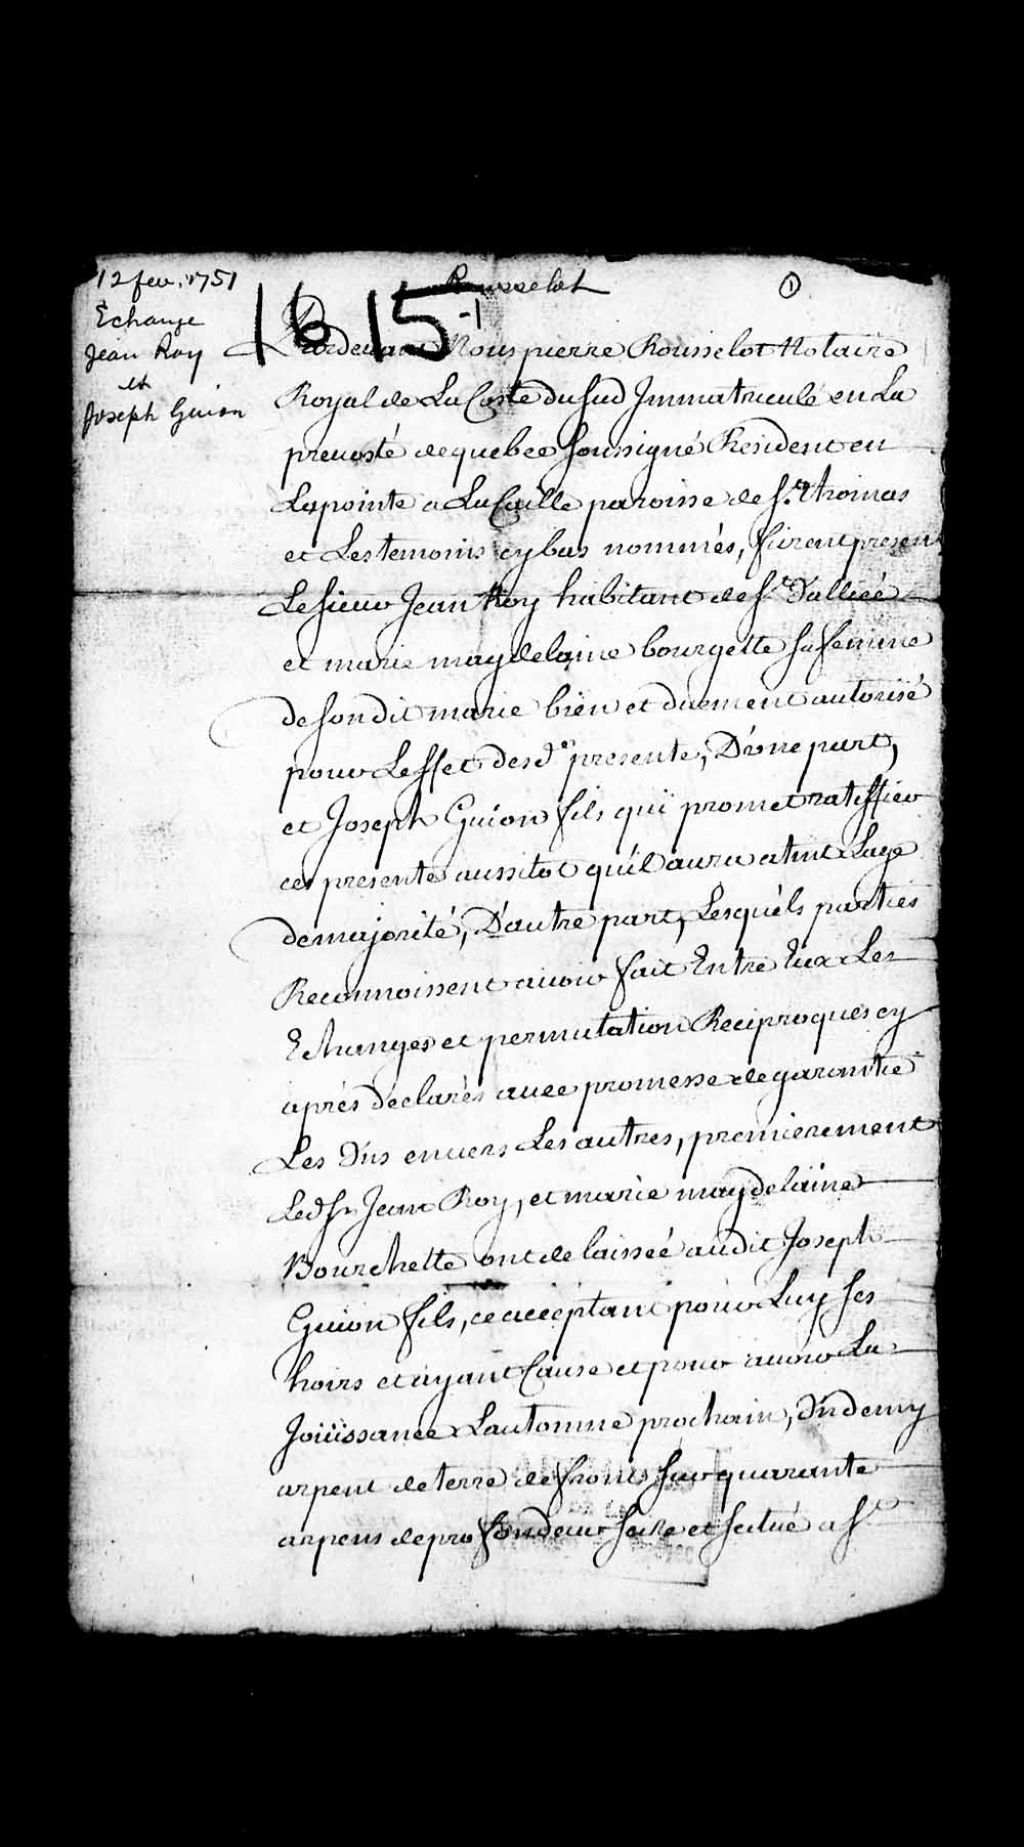 12 fev. 1751
Echange
Jean Roy
et
Joseph Guion
Rousselot
1
1615-1
Pardevant Nous pierre Rousselot Notaire
Royal de La Coste du Sud Jmmatriculé en La
prevosté de quebec soussigné Resident en
Lapointe a La Caille paroisse de St. thomas
et Les temoins cy bas nommés, furent presen
Le sieur Jean Roy habitant de St. Valliée
et marie magdelaine bourgette sa femme
de son dit marie bien et duement autorisé
pour Leffet desd. presente, D'vne part,
et Joseph Guion fils qui promet ratiffier
ces presente aussitot qu'il aura atint Lage
de majorité, D'autre part, Lesquels parties
Reconnoissent avoir fait Entre Eux Les
Echanges et permutation Reciproques cy
aprés déclarés avec promesse de garantie
Les Vns envers Les autres, premierement
Led. Sr. Jean Roy, et marie magdelaine
Bourchette ont de laissée audit Joseph
Guion fils, ce acceptant pour Luy ses
hoirs et ayant Cause et pour avoir La
Joüissance Lautomne prochain, d'vn demy
arpent de terre de front sur quarante
arpens de profondeur size et situé a St.